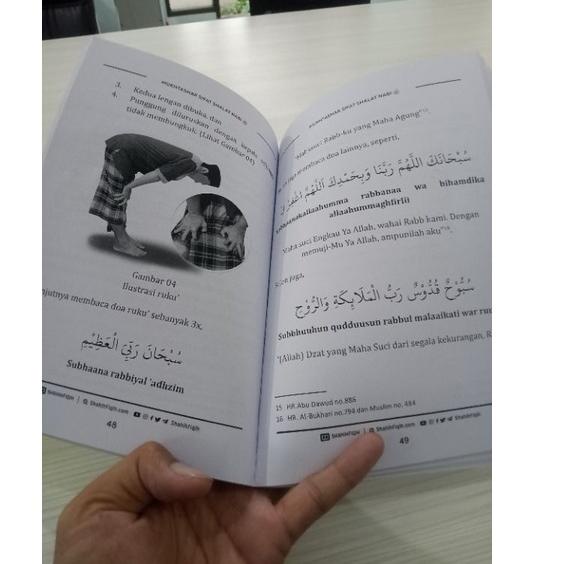 MUKHTASHAR SIFAT SHALAT NABI ﷺ
3. Kedua lengan dibuka, dan
4. Punggung diluruskan dengan kepala
tidak membungkuk. (Lihat Gambar 04)
Gambar 04
Ilustrasi ruku'
membaca doa ruku' sebanyak 3x,
سُبْحَانَ رَبِّيَ الْعَظِيْمِ
Subhaana rabbiyal 'adhzim
ShahihFiqih | ShahihFiqih.com ShahihFiqih
48
MUKHTASHAR SIFAT SHALAT NABI ﷺ
suci Rabb-ku yang Maha Agung"¹⁵.
membaca doa lainnya, seperti,
سُبْحَانَكَ اللَّهُمَّ رَبَّنَا وَبِحَمْدِكَ اَللَّهُمَّ اغْفِرْ لِيْ
rabbanaa wa bihamdika
allaahummaghfirlii
suci Engkau Ya Allah, wahai Rabb kami. Dengan
memuji-Mu Ya Allah, ampunilah aku"¹⁶.
juga,
سُبُّوْحٌ قُدُّوْسٌ رَبُّ الْمَلَائِكَةِ وَالرُّوْحِ
Subbhuuhun qudduusun rabbul malaaikati war
"(Allah) Dzat yang Maha Suci dari segala kekurangan,
15 HR.Abu Dawud no.886
16 HR. Al-Bukhari no.794 dan Muslim no. 484
ShahihFiqih | ShahihFiqih.com ShahihFiqih
49